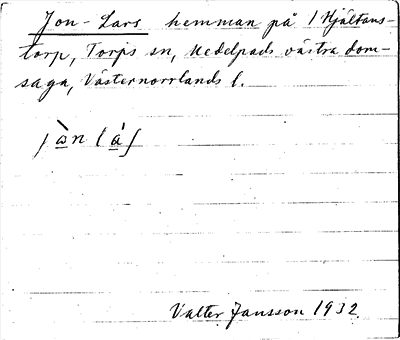 Jon-Lars hemman på 1 Hjältans-
torp, Torps sn, Medelpads västra dom-
saga, Västernorrlands l.
Valter Jansson 1932.